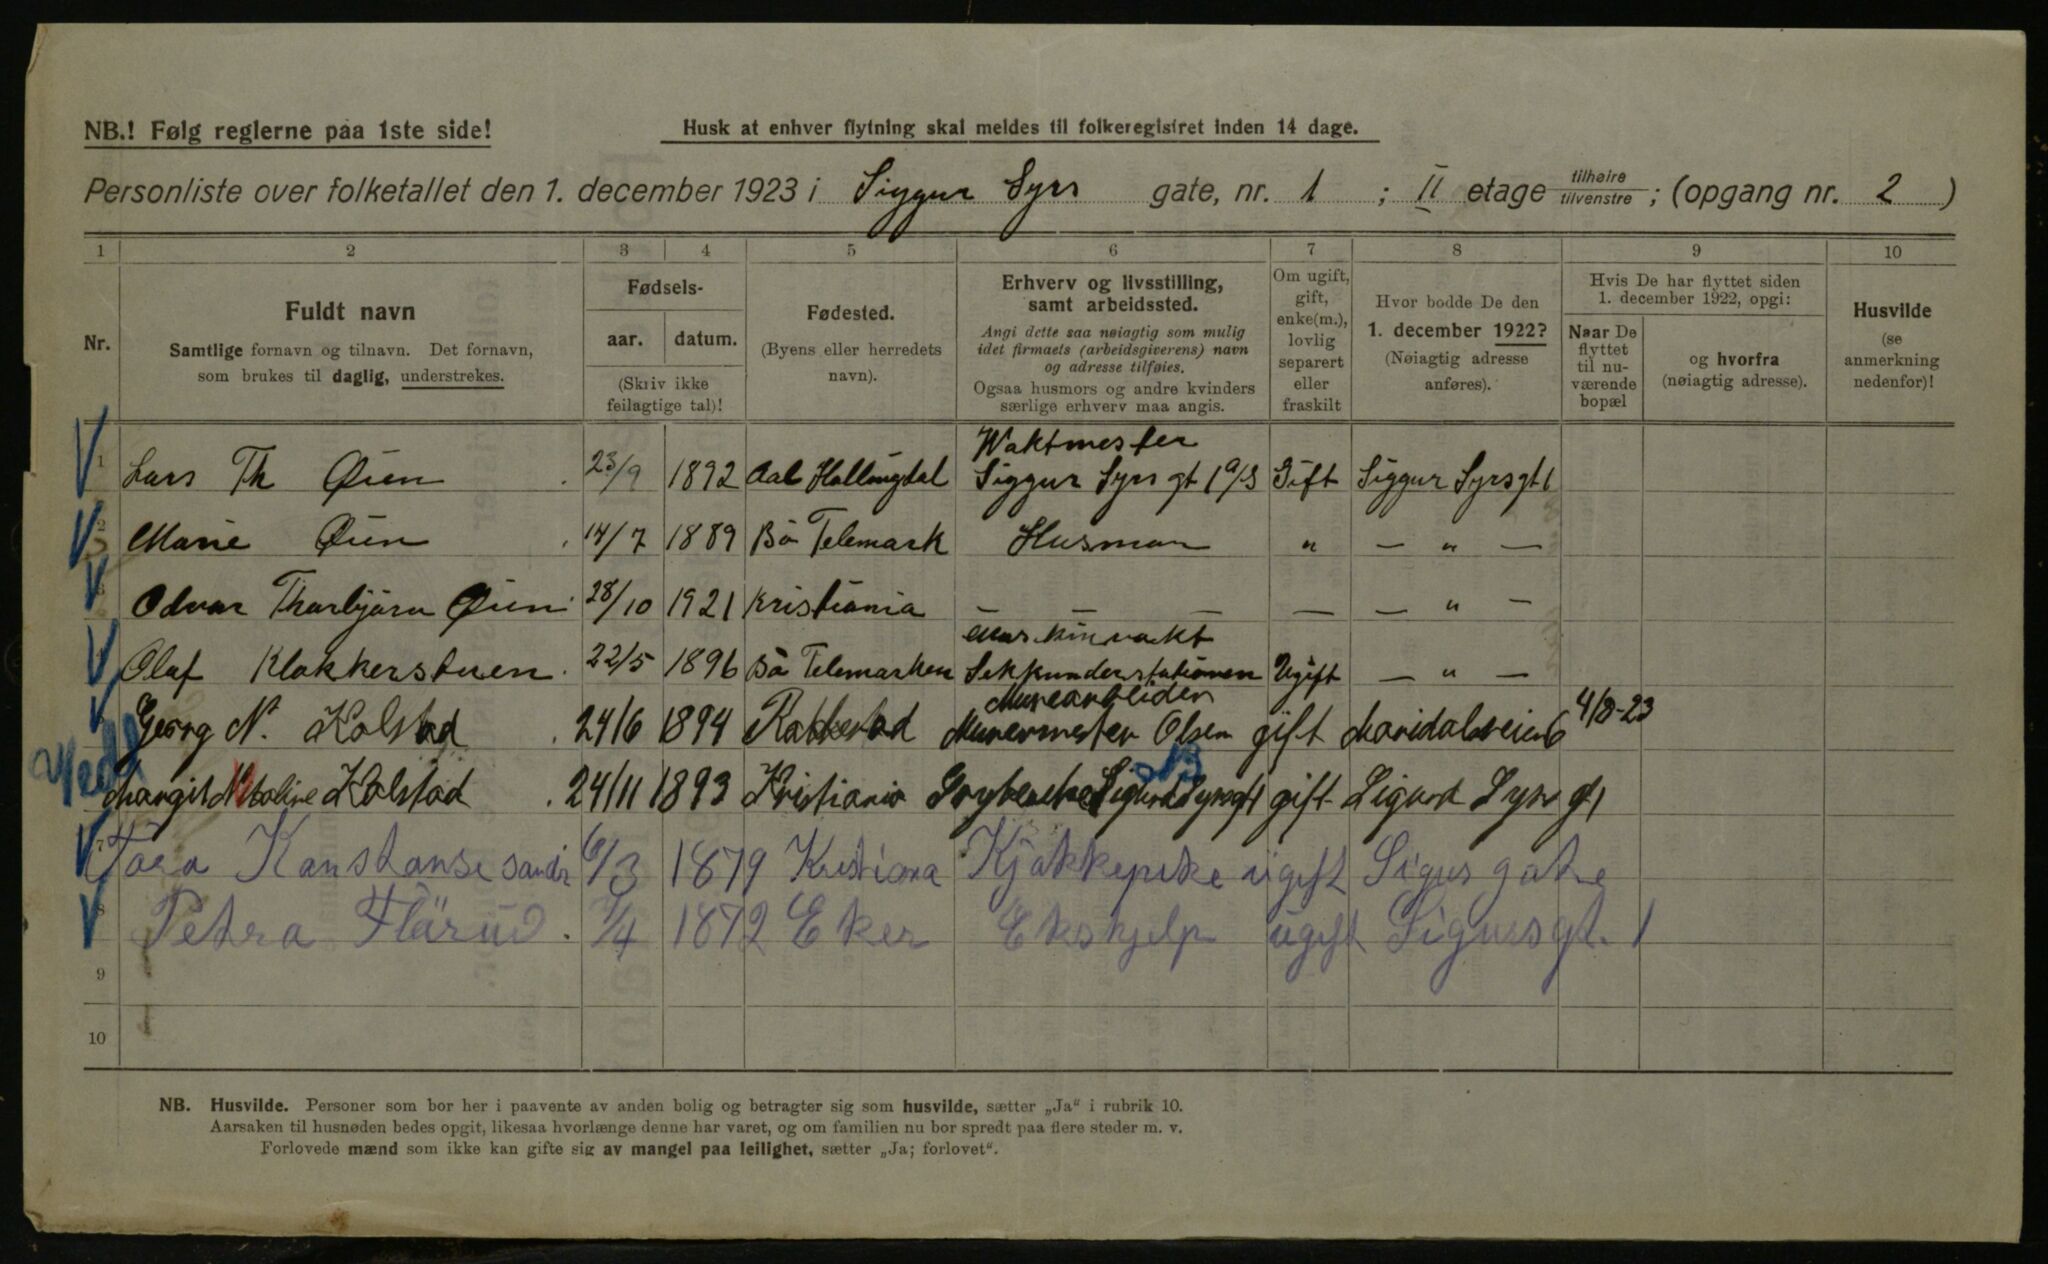 NB.! Følg reglerne paa 1ste side!
Husk at enhver flytning skal meldes til folkeregistret inden 14 dage.
Personliste over folketallet den 1. december 1923 i Siggur Syrs gate, nr. 1 ; II etage tilhøire/tilvenstre ; (opgang nr. 2 )
1 2 3 4 5 6 7 8 9 10
Nr.
Fuldt navn
Samtlige fornavn og tilnavn. Det fornavn,
som brukes til daglig, understrekes.
Fødsels-
aar. datum.
(Skriv ikke
feilagtige tal)!
Fødested.
(Byens eller herredets
navn).
Erhverv og livsstilling,
samt arbeidssted.
Angi dette saa nøiagtig som mulig
idet firmaets (arbeidsgiverens) navn
og adresse tilføies.
Ogsaa husmors og andre kvinders
særlige erhverv maa angis.
Om ugift,
gift,
enke(m.),
lovlig
separert
eller
fraskilt
Hvor bodde De den
1. december 1922?
(Nøiagtig adresse
anføres).
Hvis De har flyttet siden
1. december 1922, opgi:
Naar De
flyttet
til nu-
værende
bopæl
og hvorfra
(nøiagtig adresse).
Husvilde
(se
anmerkning
nedenfor)!
Waktmester
1 Lars Th Øien 23/9 1892 Aal Hallingdal Siggur Syrs gt 1 a/s Gift Siggur Syrsgt 1
2 Marie Øien 14/7 1889 Bø Telemark Husmor " — " —
Odvar Thorbjørn Øien 28/10 1921 Kristiania — — — — — " —
Maskinvakt
Olaf Klokkerstuen 22/5 1896 Bø Telemarken Sekkunderstationen Ugift — " —
Murearbeider
Georg N. Kolstad 24/6 1894 Rakkestad Murermester Olsen gift Maridalsveien 6 4/8-23
Margit Kolstad 24/11 1893 Kristiania Sigurd Syrsgt 1 gift Sigurd Syrs gt 1
7 Tora Konstanse 6/3 1879 Kristiana Kjøkkenpike ugift Sigurs gate
8 Petra Flårud /4 1872 Eker Ekshjelp ugift Sigursgt. 1
9
10
NB. Husvilde. Personer som bor her i paavente av anden bolig og betragter sig som husvilde, sætter „Ja" i rubrik 10.
Aarsaken til husnøden bedes opgit, likesaa hvorlænge denne har varet, og om familien nu bor spredt paa flere steder m. v.
Forlovede mænd som ikke kan gifte sig av mangel paa leilighet, sætter „Ja; forlovet".